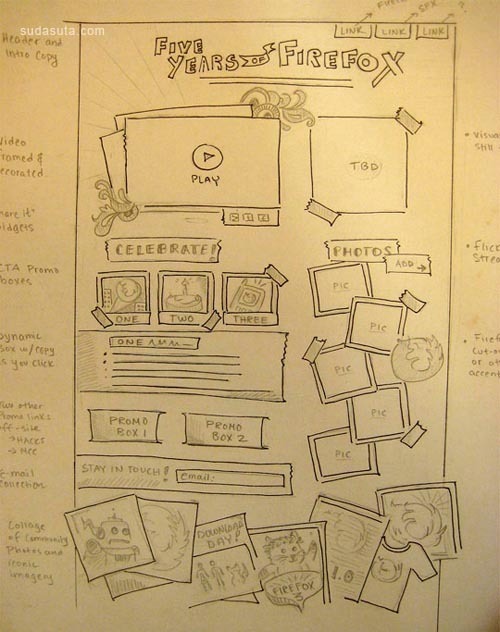 sudasuta.com
Header and
Intro Copy
LINK LINK LINK
FIVE
YEARS OF FIREFOX
PLAY
TBD
CELEBRATE!
PHOTOS
ADD →
PIC
PIC
PIC
PIC
PIC
ONE TWO THREE
ONE
PROMO
BOX 1
PROMO
BOX 2
STAY IN TOUCH!
email:
DOWNLOAD
DAY!
FIREFOX
3
1.0
Video
framed &
decorated
CTA Promo
boxes
Dynamic
Box w/copy
as you click
Two other
promo links
off-site
→ HACKS
→ MCC
E-mail
collection
Collage
of Community
Photos and
iconic
imagery
• Visua
still
• Flicr
Strea
• Firef
cut-o
or ot
accent